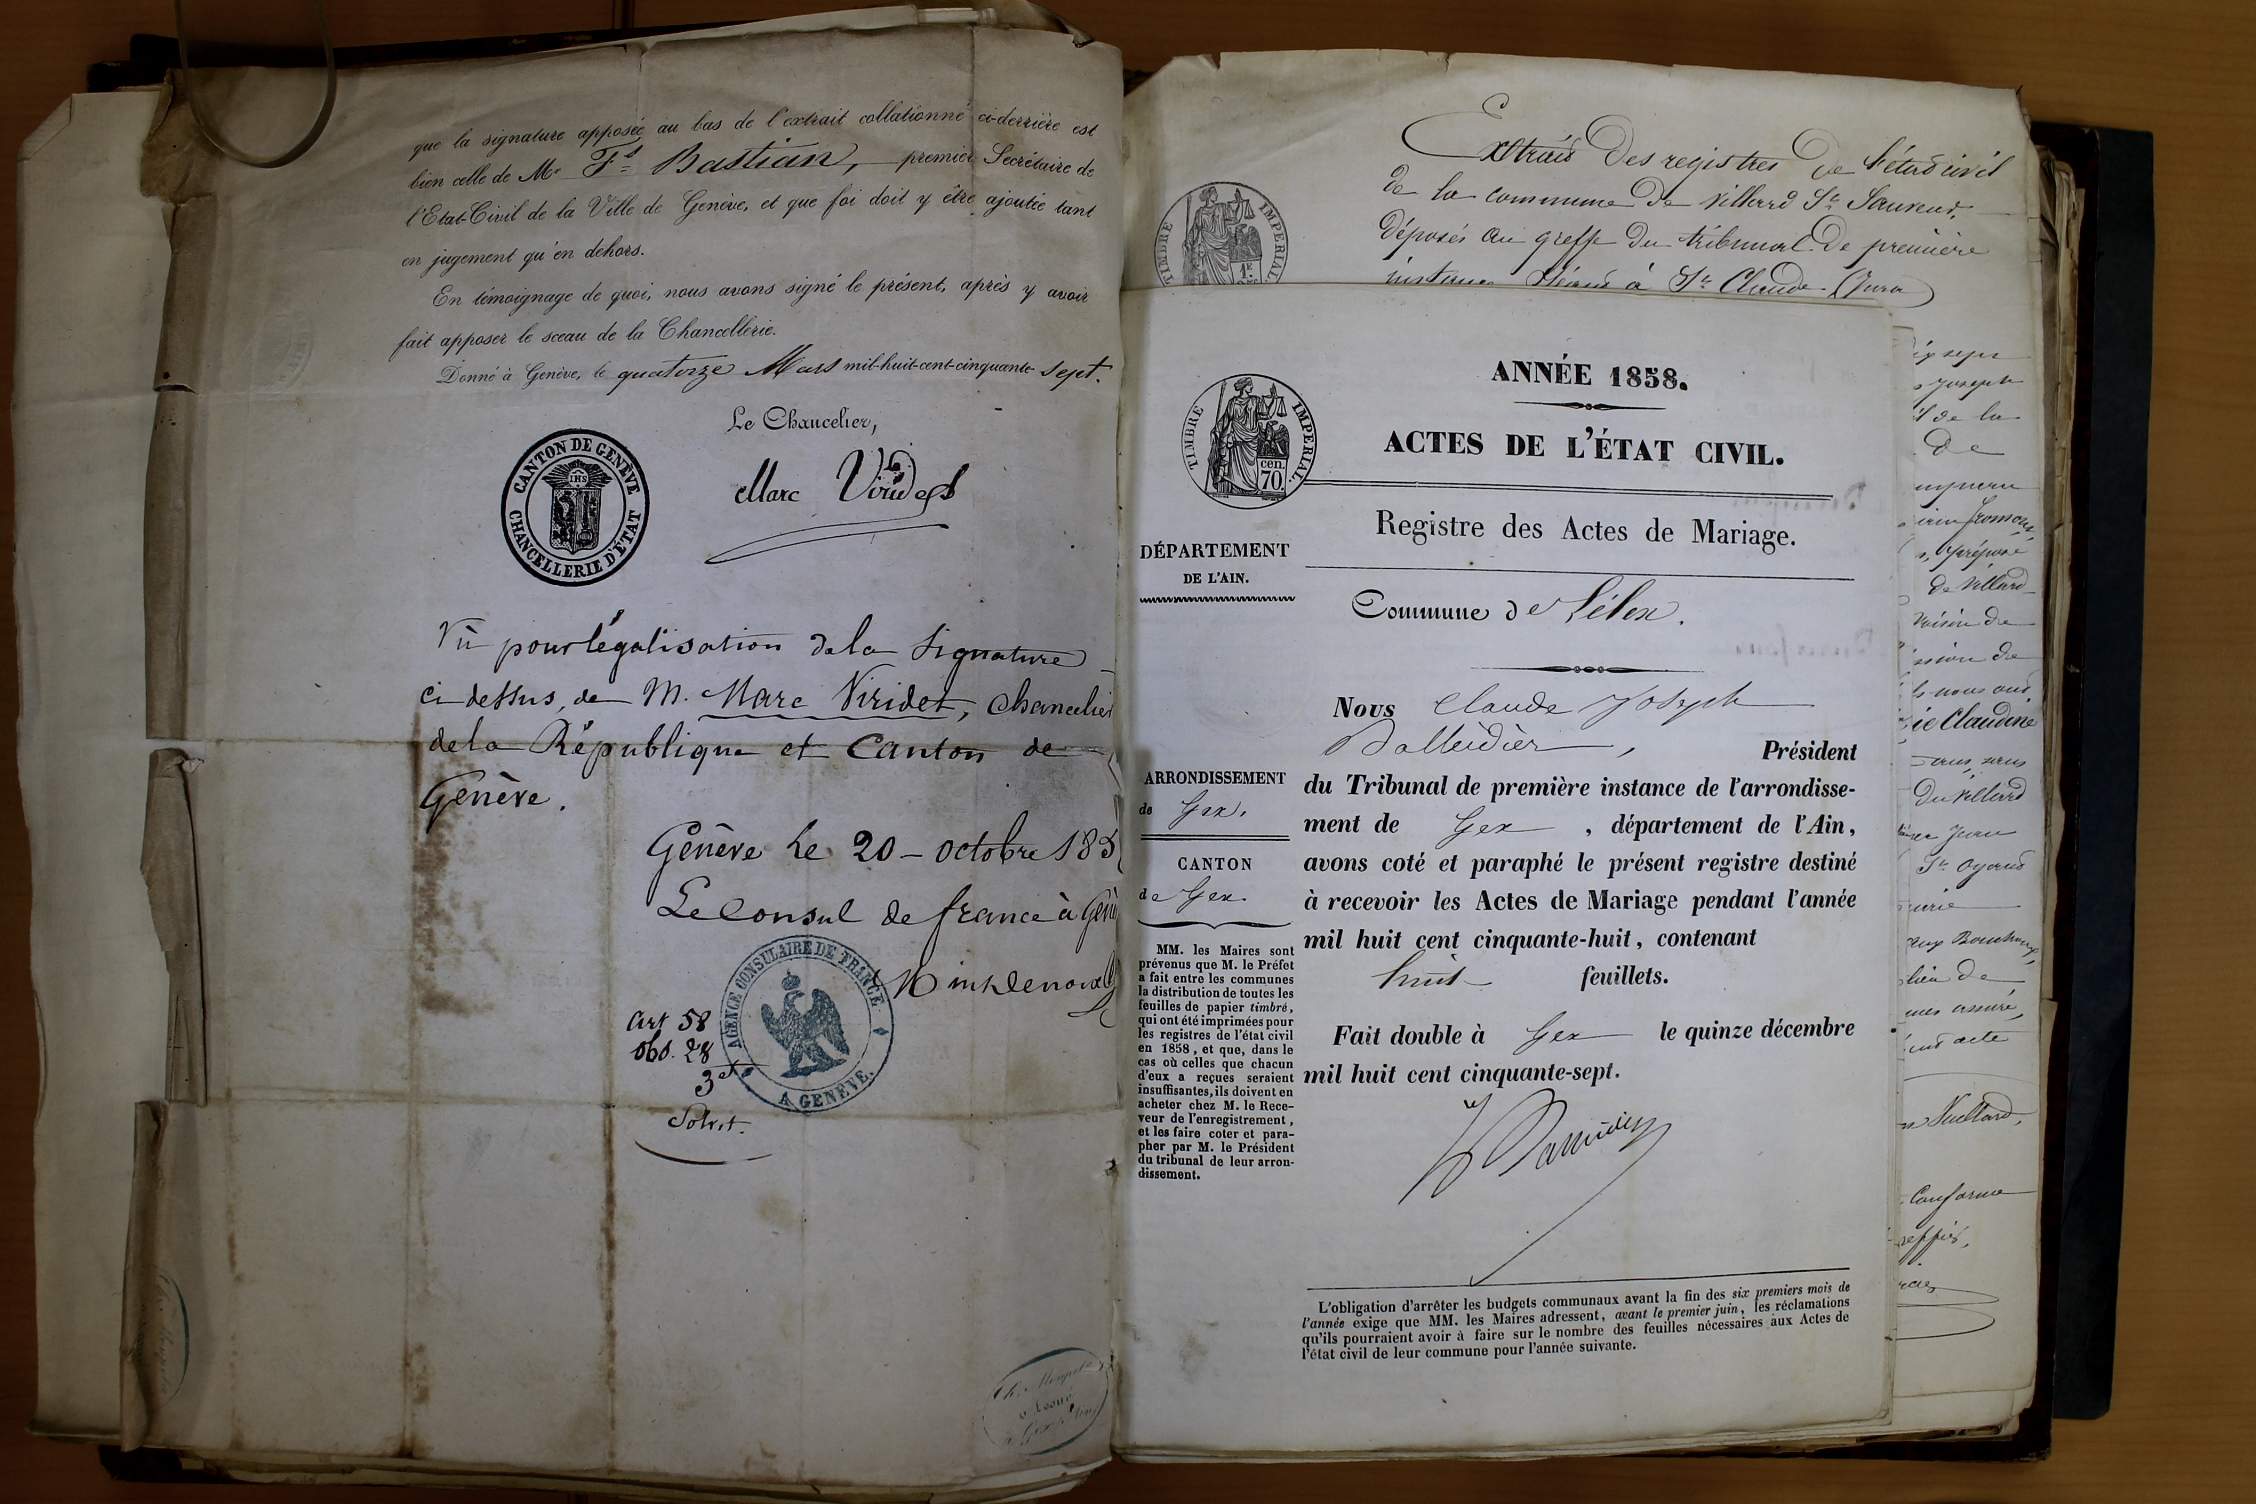 que la signature apposée au bas de l'extrait collationné ci-derrière est
bien celle de Mr. Fs Bastian, premier Secrétaire de
l'Etat-Civil de la Ville de Genève, et que foi doit y être ajoutée tant
en jugement qu'en dehors.
En témoignage de quoi, nous avons signé le présent, après y avoir
fait apposer le sceau de la Chancellerie.
Donné à Genève, le quatorze Mars mil-huit-cent-cinquante sept.
Le Chancelier,
Marc Viridet
CANTON DE GENÈVE
IHS
CHANCELLERIE D'ÉTAT
Vu pour légalisation de la Signature
ci dessus, de M. Marc Viridet, Chancelier
de la République et Canton de
Genève.
Genève le 20 - octobre 185
Le Consul de france à Genè
AGENCE CONSULAIRE DE FRANCE
A GENÈVE.
Art 58
obs. 28
Extrait des registres de l'état civil
de la commune de Villard St Sauveur,
déposés au greffe du tribunal de première
instance séant à St Claude (Jura)
TIMBRE IMPERIAL
ANNÉE 1858.
TIMBRE IMPERIAL.
cen.
70.
ACTES DE L'ÉTAT CIVIL.
Registre des Actes de Mariage.
DÉPARTEMENT
DE L'AIN.
Commune de Lélex.
Nous Claude Joseph
Balleidier, Président
du Tribunal de première instance de l'arrondisse-
ment de Gex, département de l'Ain,
avons coté et paraphé le présent registre destiné
à recevoir les Actes de Mariage pendant l'année
mil huit cent cinquante-huit, contenant
huit feuillets.
Fait double à Gex le quinze décembre
mil huit cent cinquante-sept.
ARRONDISSEMENT
de Gex.
CANTON
de Gex.
MM. les Maires sont
prévenus que M. le Préfet
a fait entre les communes
la distribution de toutes les
feuilles de papier timbré,
qui ont été imprimées pour
les registres de l'état civil
en 1858, et que, dans le
cas où celles que chacun
d'eux a reçues seraient
insuffisantes, ils doivent en
acheter chez M. le Rece-
veur de l'enregistrement,
et les faire coter et para-
pher par M. le Président
du tribunal de leur arron-
dissement.
L'obligation d'arrêter les budgets communaux avant la fin des six premiers mois de
l'année exige que MM. les Maires adressent, avant le premier juin, les réclamations
qu'ils pourraient avoir à faire sur le nombre des feuilles nécessaires aux Actes de
l'état civil de leur commune pour l'année suivante.
de la
de
préposé
de Villard
voisin de
de
nous ont
Claudine
du Villard
Jean
St Oyand
lieu de
acte
Vuillard,
Conforme